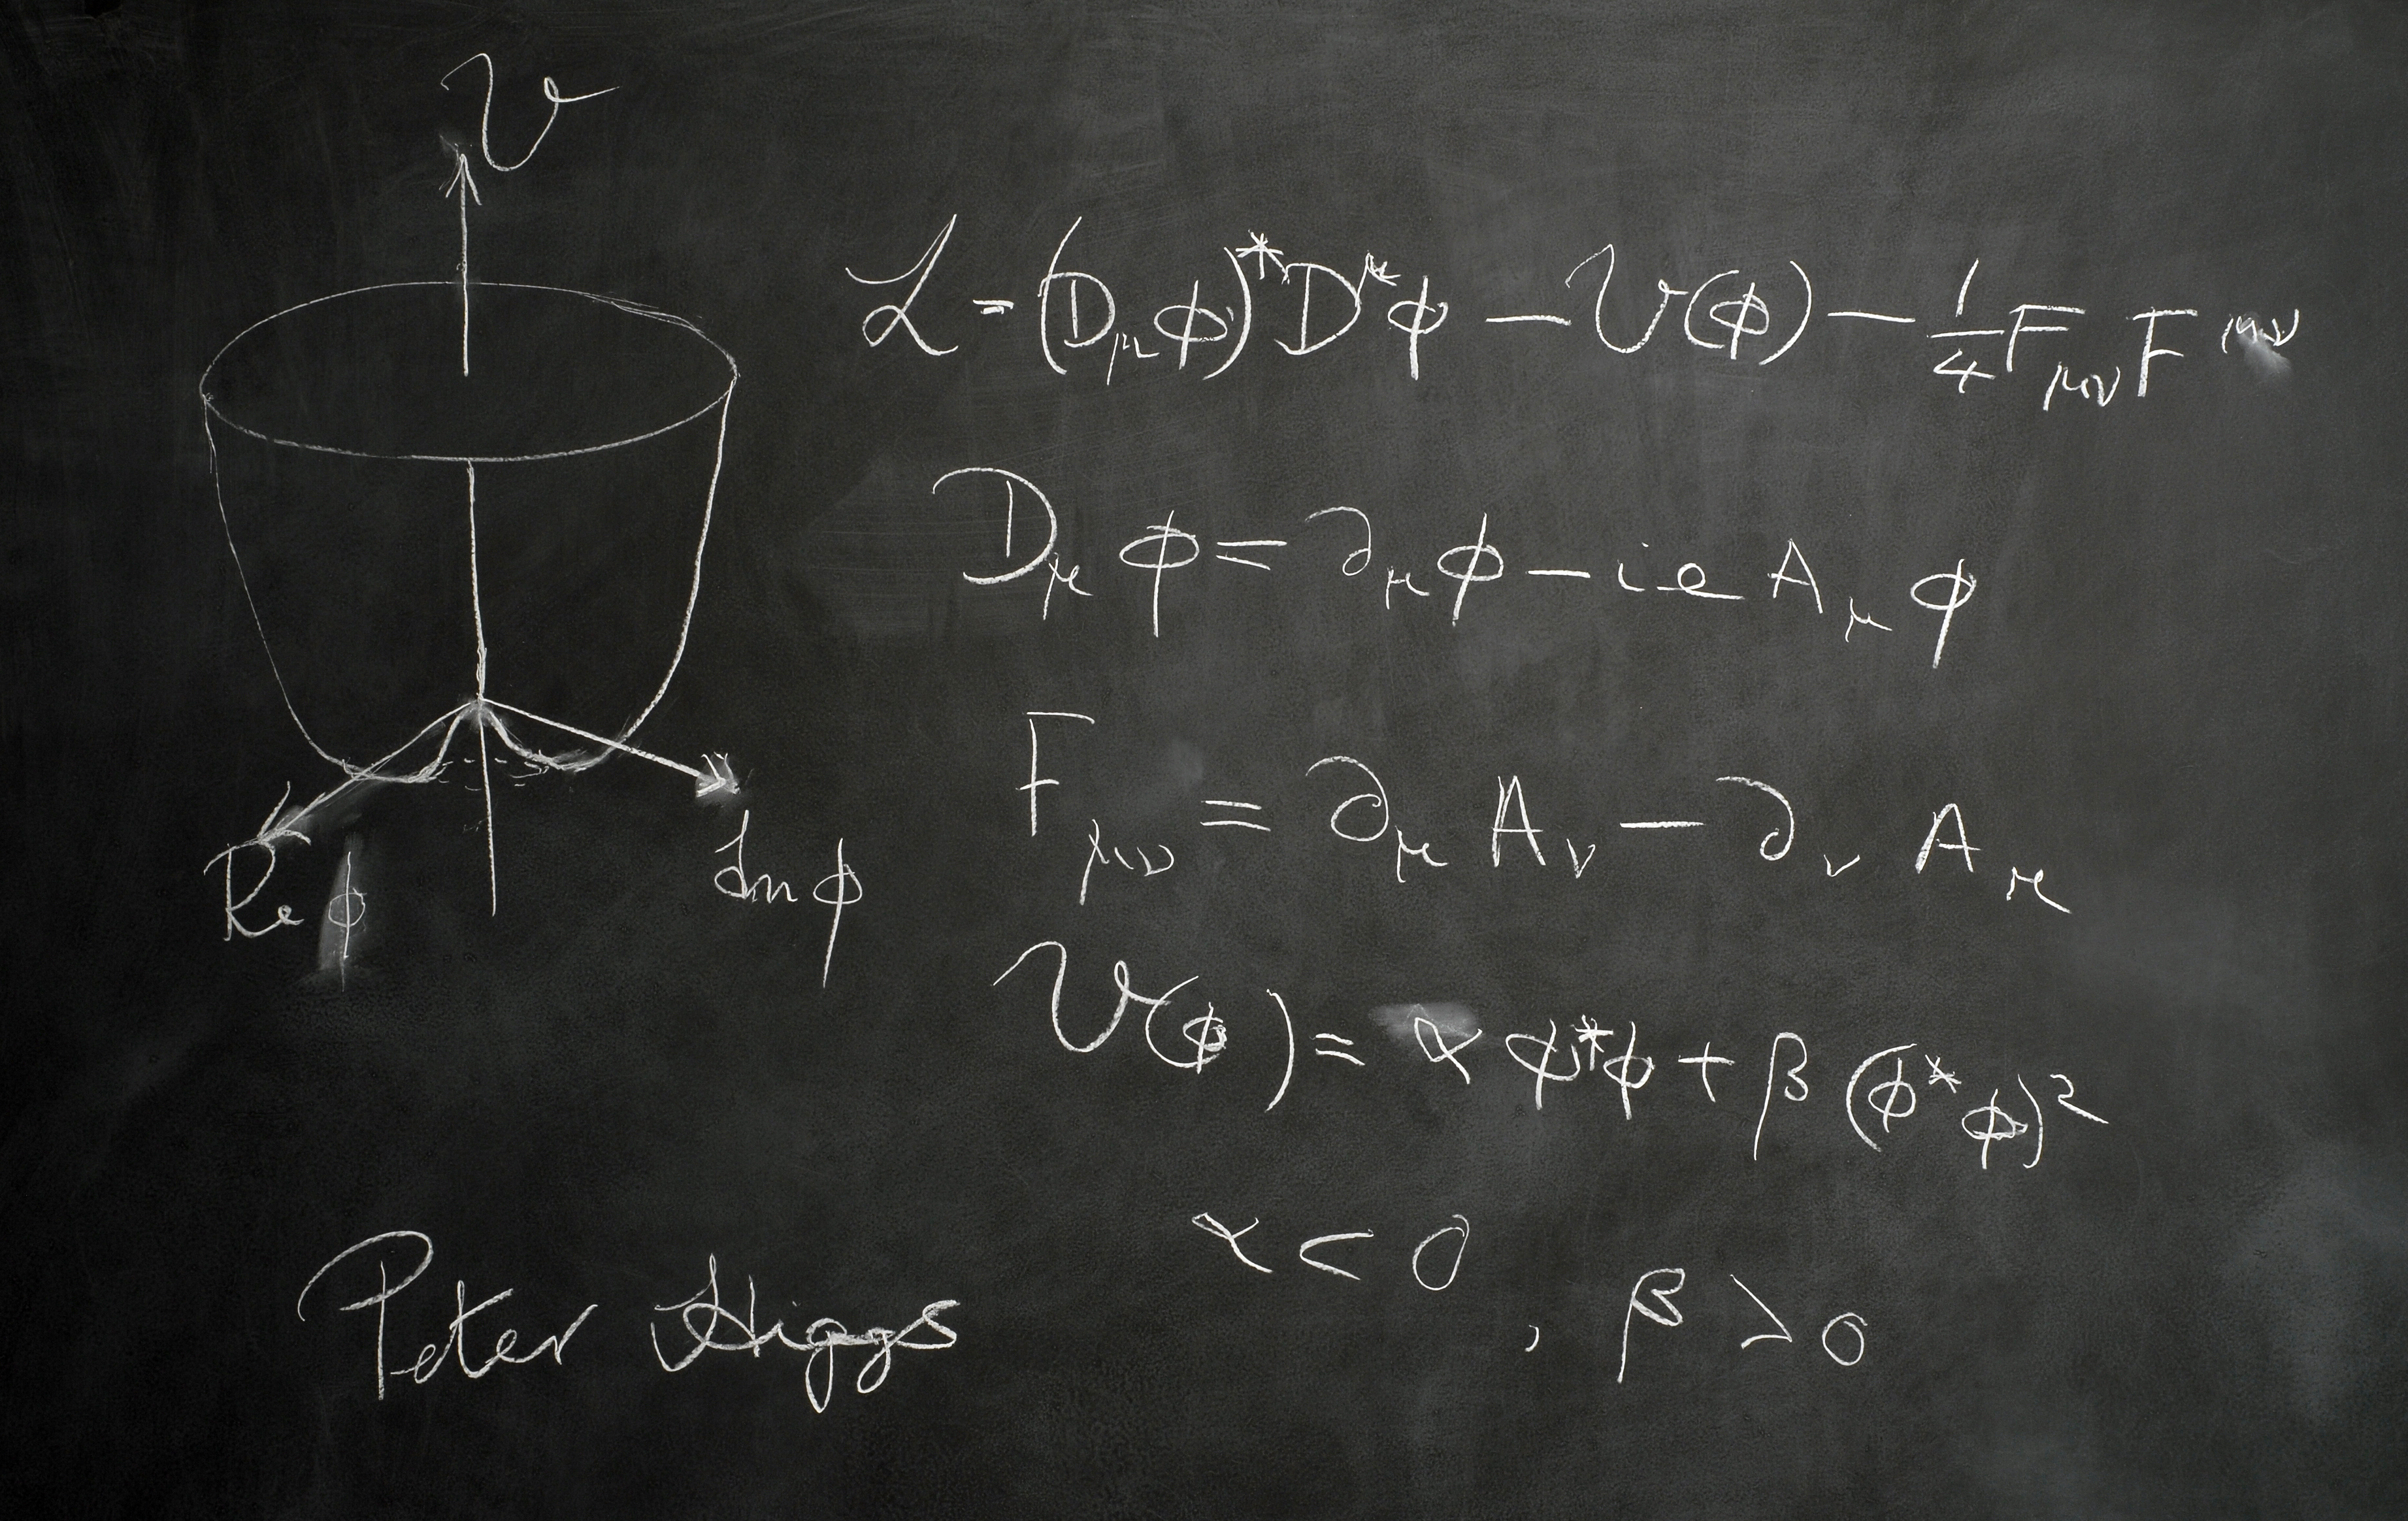 V
ℒ = (D_μ ϕ)* D^μ ϕ − V(ϕ) − 1/4 F_μν F^μν
D_μ ϕ = ∂_μ ϕ − ie A_μ ϕ
F_μν = ∂_μ A_ν − ∂_ν A_μ
Re ϕ
Im ϕ
V(ϕ) = α ϕ*ϕ + β (ϕ*ϕ)²
α < 0 , β > 0
Peter Higgs